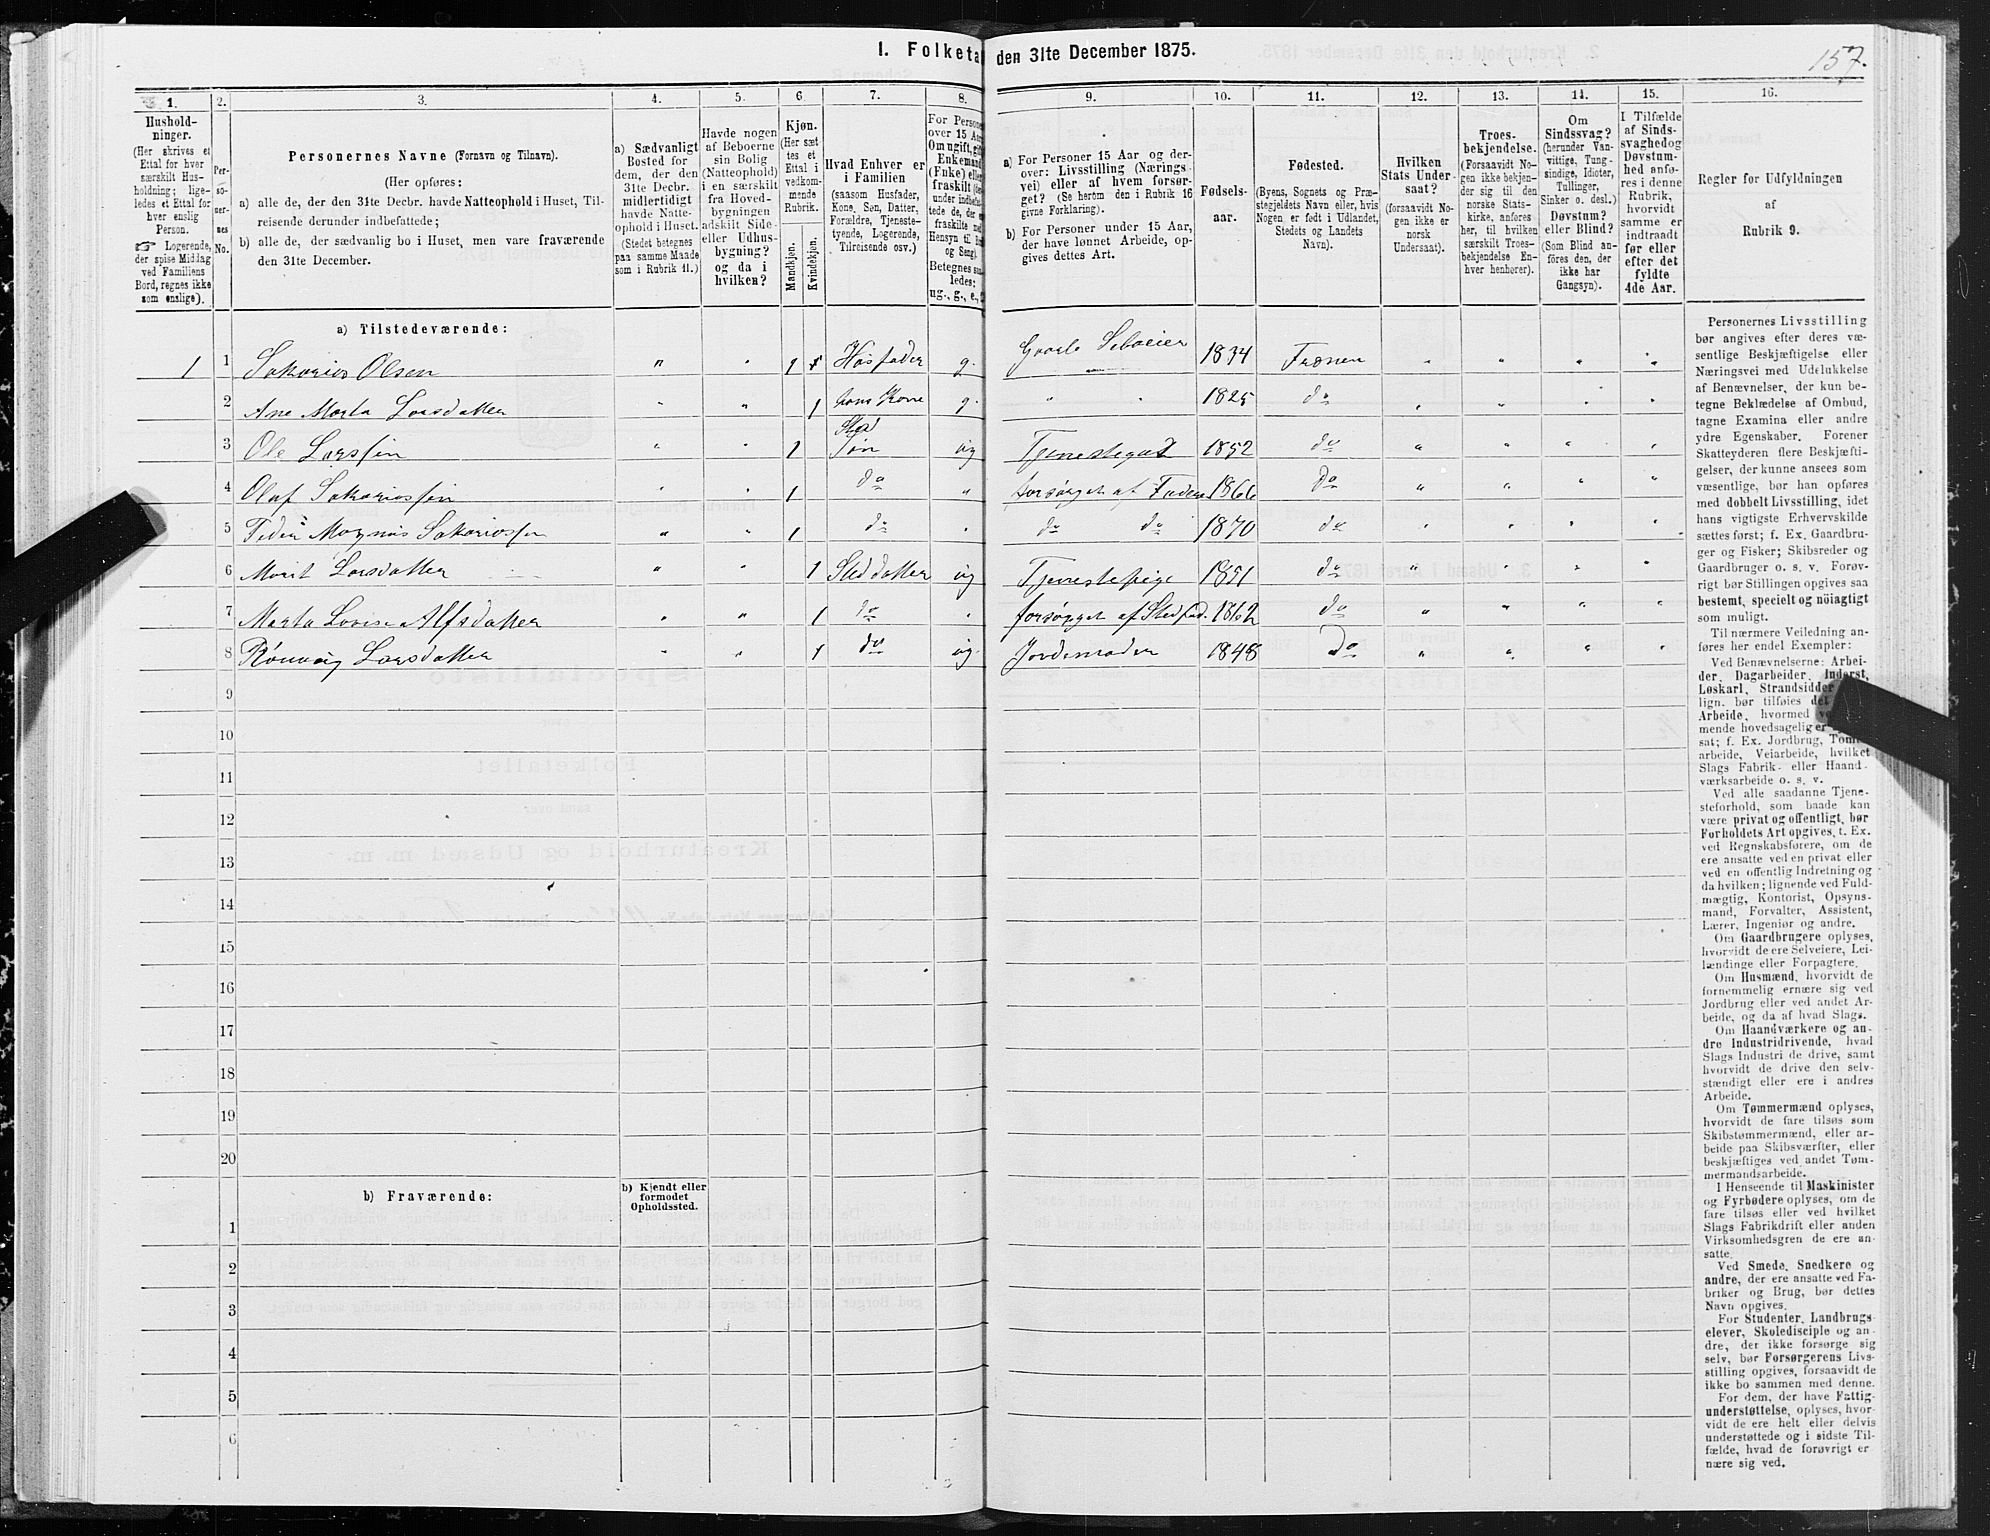 I. Folketa den 31te December 1875.
157.
1. 2. 3. 4. 5. 6 7. 8. 9. 10. 11. 12. 13. 14. 15. 16.
Hushold-
ninger.
(Her skrives et
Ettal for hver
særskilt Hus-
holdning; lige-
ledes et Ettal for
hver enslig
Person.
☞ Logerende,
der spise Middag
ved Familiens
Bord, regnes ikke
som enslige).
Per-
so-
ner-
nes
No.
Personernes Navne (Fornavn og Tilnavn).
(Her opføres:
a) alle de, der den 31te Decbr. havde Natteophold i Huset, Til-
reisende derunder indbefattede;
b) alle de, der sædvanlig bo i Huset, men vare fraværende
den 31te December.
a) Sædvanligt
Bosted for
dem, der den
31te Decbr.
midlertidigt
havde Natte-
ophold i Huset.
(Stedet betegnes
paa samme Maade
som i Rubrik 11.)
Havde nogen
af Beboerne
sin Bolig
(Natteophold)
i en særskilt
fra Hoved-
bygningen
adskilt Side-
eller Udhus-
bygning?
og da i
hvilken?
Kjøn.
(Her sæt-
tes et
Ettal i
vedkom-
mende
Rubrik.
Mandkjøn.
Kvindekjøn.
Hvad Enhver er
i Familien
(saasom Husfader,
Kone, Søn, Datter,
Forældre, Tjeneste-
tyende, Logerende,
Tilreisende osv.)
For Persone
over 15 Aa
Om ugift, gi
Enkemand
(Enke) elle
fraskilt
under indbef
tede de, der
fraskilte
Hensyn til
og Seng).
Betegnes saa
ledes:
ug., g., e.,
a) For Personer 15 Aar og der-
over: Livsstilling (Nærings-
vei) eller af hvem forsør-
get? (Se herom den i Rubrik 16
givne Forklaring).
b) For Personer under 15 Aar,
der have lønnet Arbeide, op-
gives dettes Art.
Fødsels-
aar.
Fødested.
(Byens, Sognets og Præ-
stegjeldets Navn eller, hvis
Nogen er født i Udlandet,
Stedets og Landets
Navn).
Hvilken
Stats Under-
saat?
(forsaavidt No-
gen ikke er
norsk
Undersaat).
Troes-
bekjendelse.
(Forsaavidt No-
gen ikke bekjen-
der sig til den
norske Stats-
kirke, anføres
her, til hvilken
særskilt Troes-
bekjendelse En-
hver henhører).
Om
Sindssvag?
(herunder Van-
vittige, Tung-
sindige, Idioter,
Tullinger,
Sinker o. desl.)
Døvstum?
eller Blind?
(Som Blind an-
føres den, der
ikke har
Gangsyn).
I Tilfælde
af Sinds-
svaghed og
Døvstum-
hed anfø-
res i denne
Rubrik,
hvorvidt
samme er
indtraadt
før eller
efter det
fyldte
4de Aar.
Regler for Udfyldningen
af
Rubrik 9.
a) Tilstedeværende:
1 1 Sakarios Olsen " " 1 Husfader g. Gaard Selveier 1834 Frænen " " " "
2 Ane Marta Larsdatter " " 1 hans Kone g. " " 1825 do " " " "
3 Ole Larssen " " 1 Sted Søn ug Tjenestegut 1852 do " " " "
4 Olaf Sakariossen " " 1 do " forsørget af Faderen 1866 Do " " " "
5 Peder Magnus Sakariossen " " 1 do " do do 1870 do " " " "
6 Marit Larsdatter " " 1 Sted datter ug Tjenestepige 1851 do " " " "
7 Marta Lovise Alfsdatter " " 1 do " forsørget af Stedfad. 1862 do " " " "
8 Rønnvig Larsdatter " " 1 do ug. Jordemoder 1848 Do " " " "
9
10
11
12
13
14
15
16
17
18
19
20
b) Fraværende:
b) Kjendt eller
formodet
Opholdssted.
1
2
3
4
5
6
Personernes Livsstilling
bør angives efter deres væ-
sentlige Beskjæftigelse eller
Næringsvei med Udelukkelse
af Benævnelser, der kun be-
tegne Beklædelse af Ombud,
tagne Examina eller andre
ydre Egenskaber. Forener
Skatteyderen flere Beskjæfti-
gelser, der kunne ansees som
væsentlige, bør han opføres
med dobbelt Livsstilling, idet
hans vigtigste Erhvervskilde
sættes først; f. Ex. Gaardbru-
ger og Fisker; Skibsreder og
Gaardbruger o. s. v. Forøv-
rigt bør Stillingen opgives saa
bestemt, specielt og nøiagtigt
som muligt.
Til nærmere Veiledning an-
føres her endel Exempler:
Ved Benævnelserne: Arbei-
der, Dagarbeider, Inderst,
Løskarl, Strandsidder
lign. bør tilføies det
Arbeide, hvormed
mende hovedsagelig er
sat; f. Ex. Jordbrug, Tømmer-
arbeide, Veiarbeide, hvilket
Slags Fabrik- eller Haand-
værksarbeide o. s. v.
Ved alle saadanne Tjene-
steforhold, som baade kan
være privat og offentligt, bør
Forholdets Art opgives, t. Ex.
ved Regnskabsførere, om de
ere ansatte ved en privat eller
ved en offentlig Indretning og
da hvilken; lignende ved Fuld-
mægtig, Kontorist, Opsyns-
mand, Forvalter, Assistent,
Lærer, Ingeniør og andre.
Om Gaardbrugere oplyses,
hvorvidt de ere Selveiere, Lei-
lændinge eller Forpagtere.
Om Husmænd, hvorvidt de
fornemmelig ernære sig ved
Jordbrug eller ved andet Ar-
beide, og da af hvad Slags.
Om Haandværkere og an-
dre Industridrivende, hvad
Slags Industri de drive, samt
hvorvidt de drive den selv-
stændigt eller ere i andres
Arbeide.
Om Tømmermænd oplyses,
hvorvidt de fare tilsøs som
Skibstømmermænd, eller ar-
beide paa Skibsværfter, eller
beskjæftiges ved andet Tøm-
mermandsarbeide.
I Henseende til Maskinister
og Fyrbødere oplyses, om de
fare tilsøs eller ved hvilket
Slags Fabrikdrift eller anden
Virksomhedsgren de ere an-
satte.
Ved Smede, Snedkere og
andre, der ere ansatte ved Fa-
briker og Brug, bør dettes
Navn opgives.
For Studenter, Landbrugs-
elever, Skoledisciple og an-
dre, der ikke forsørge sig
selv, bør Forsørgerens Livs-
stilling opgives, forsaavidt de
ikke bo sammen med denne.
For dem, der have Fattig-
understøttelse, oplyses, hvor-
vidt de ere helt eller delvis
understøttede og i sidste Til-
fælde, hvad de forøvrigt er-
nære sig ved.